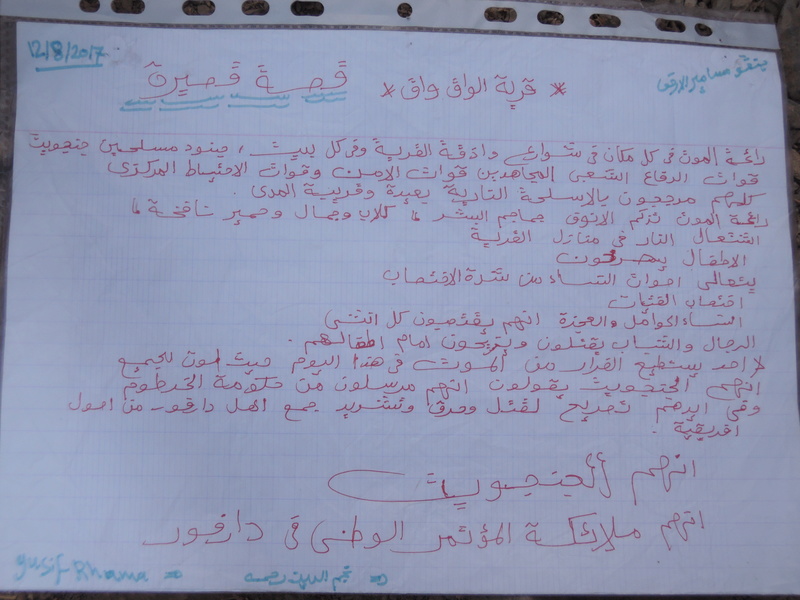 12/8/2017
قصة قصيرة
* قرية الواق واق *
رائحة الموت فى كل مكان فى شوارع وازقة القرية وفى كل بيت ، جنود مسلحين جنجويت
قوات الدفاع الشعبى المجاهدين قوات الامن وقوات الاحتياط المركزى
كلهم مدججون بالاسلحة النارية بعيدة وقريبة المدى .
رائحة الموت تزكم الانوف جماجم البشر ، كلاب وجمال وحمير نافخة ،
اشتعال النار فى منازل القرية
الاطفال يصرخون
يتعالى اصوات النساء من شدة الاغتصاب
اغتصاب الفتيات
النساء الحوامل والعجزة انهم يغتصبون كل انثى
الرجال والشباب يقتلون ويذبحون امام اطفالهم .
لا احد يستطيع الفرار من الموت فى هذا اليوم حيث الموت للجميع
انهم الجنجويت يقولون انهم مرسلون من حكومة الخرطوم
وفى ايدهم تصريح لقتل وحرق وتشريد جمع اهل دارفور من اصول
افريقية .
انهم الجنجويت
انهم ملائكة المؤتمر الوطنى فى دارفور
yusif Rhama =
نجم الدين رحمه